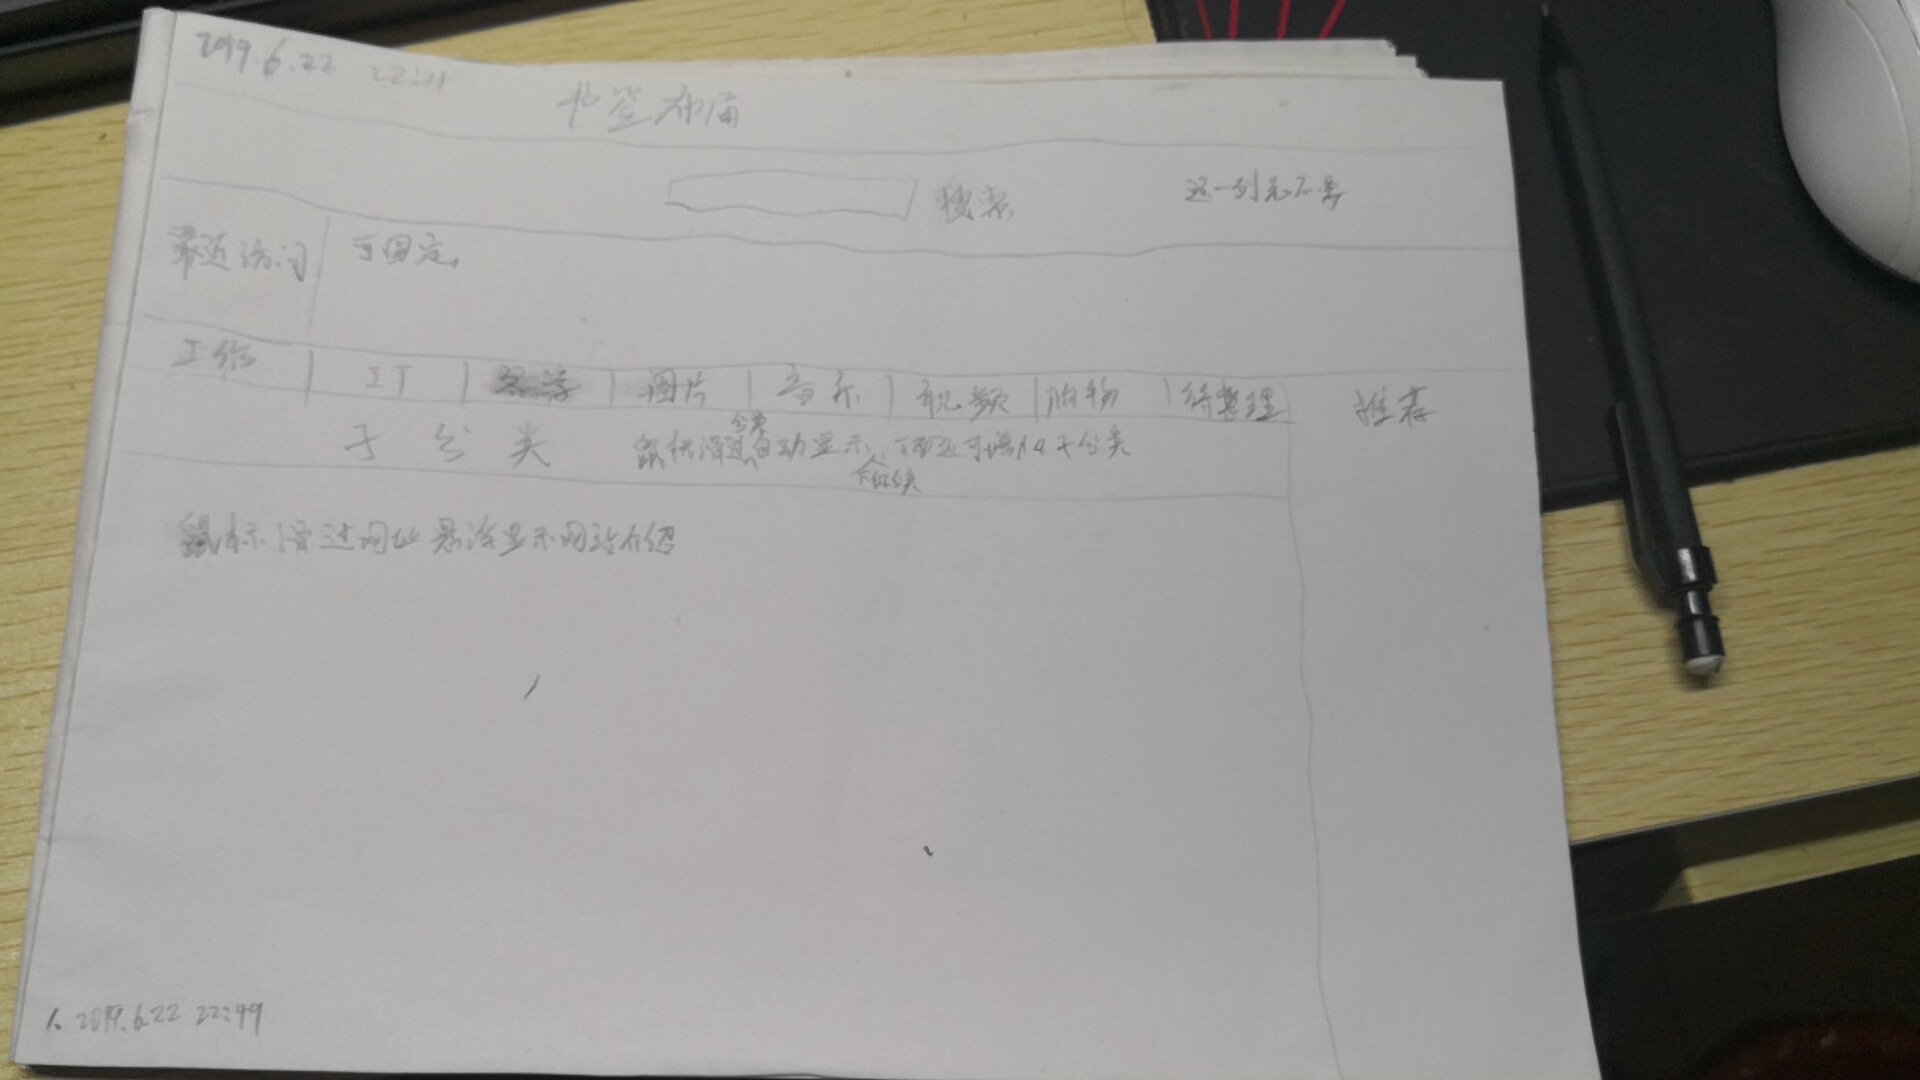 2019.6.22 22:21
书签布局
搜索 这一列先不要
最近访问 可固定,
工作 IT 图片 音乐 视频 购物 待整理 推荐
子分类 鼠标滑过分类自动显示、下面还可增加子分类
鼠标滑过网址悬浮显示网站介绍
1. 2019.6.22 22:49